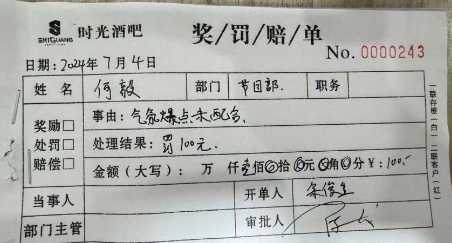 SHIGUANG 时光酒吧 奖/罚/赔/单
No. 0000243
日期：2024年7月4日
姓名 何毅 部门 节目部. 职务
奖励□ 处罚□ 赔偿□
事由：气氛爆点未配合.
处理结果：罚100元.
金额（大写）： 万 仟壹佰⓪拾⓪元⓪角⓪分 ¥：100.-
当事人 开单人
部门主管 审批人
一联存根（白）二联客户（红）